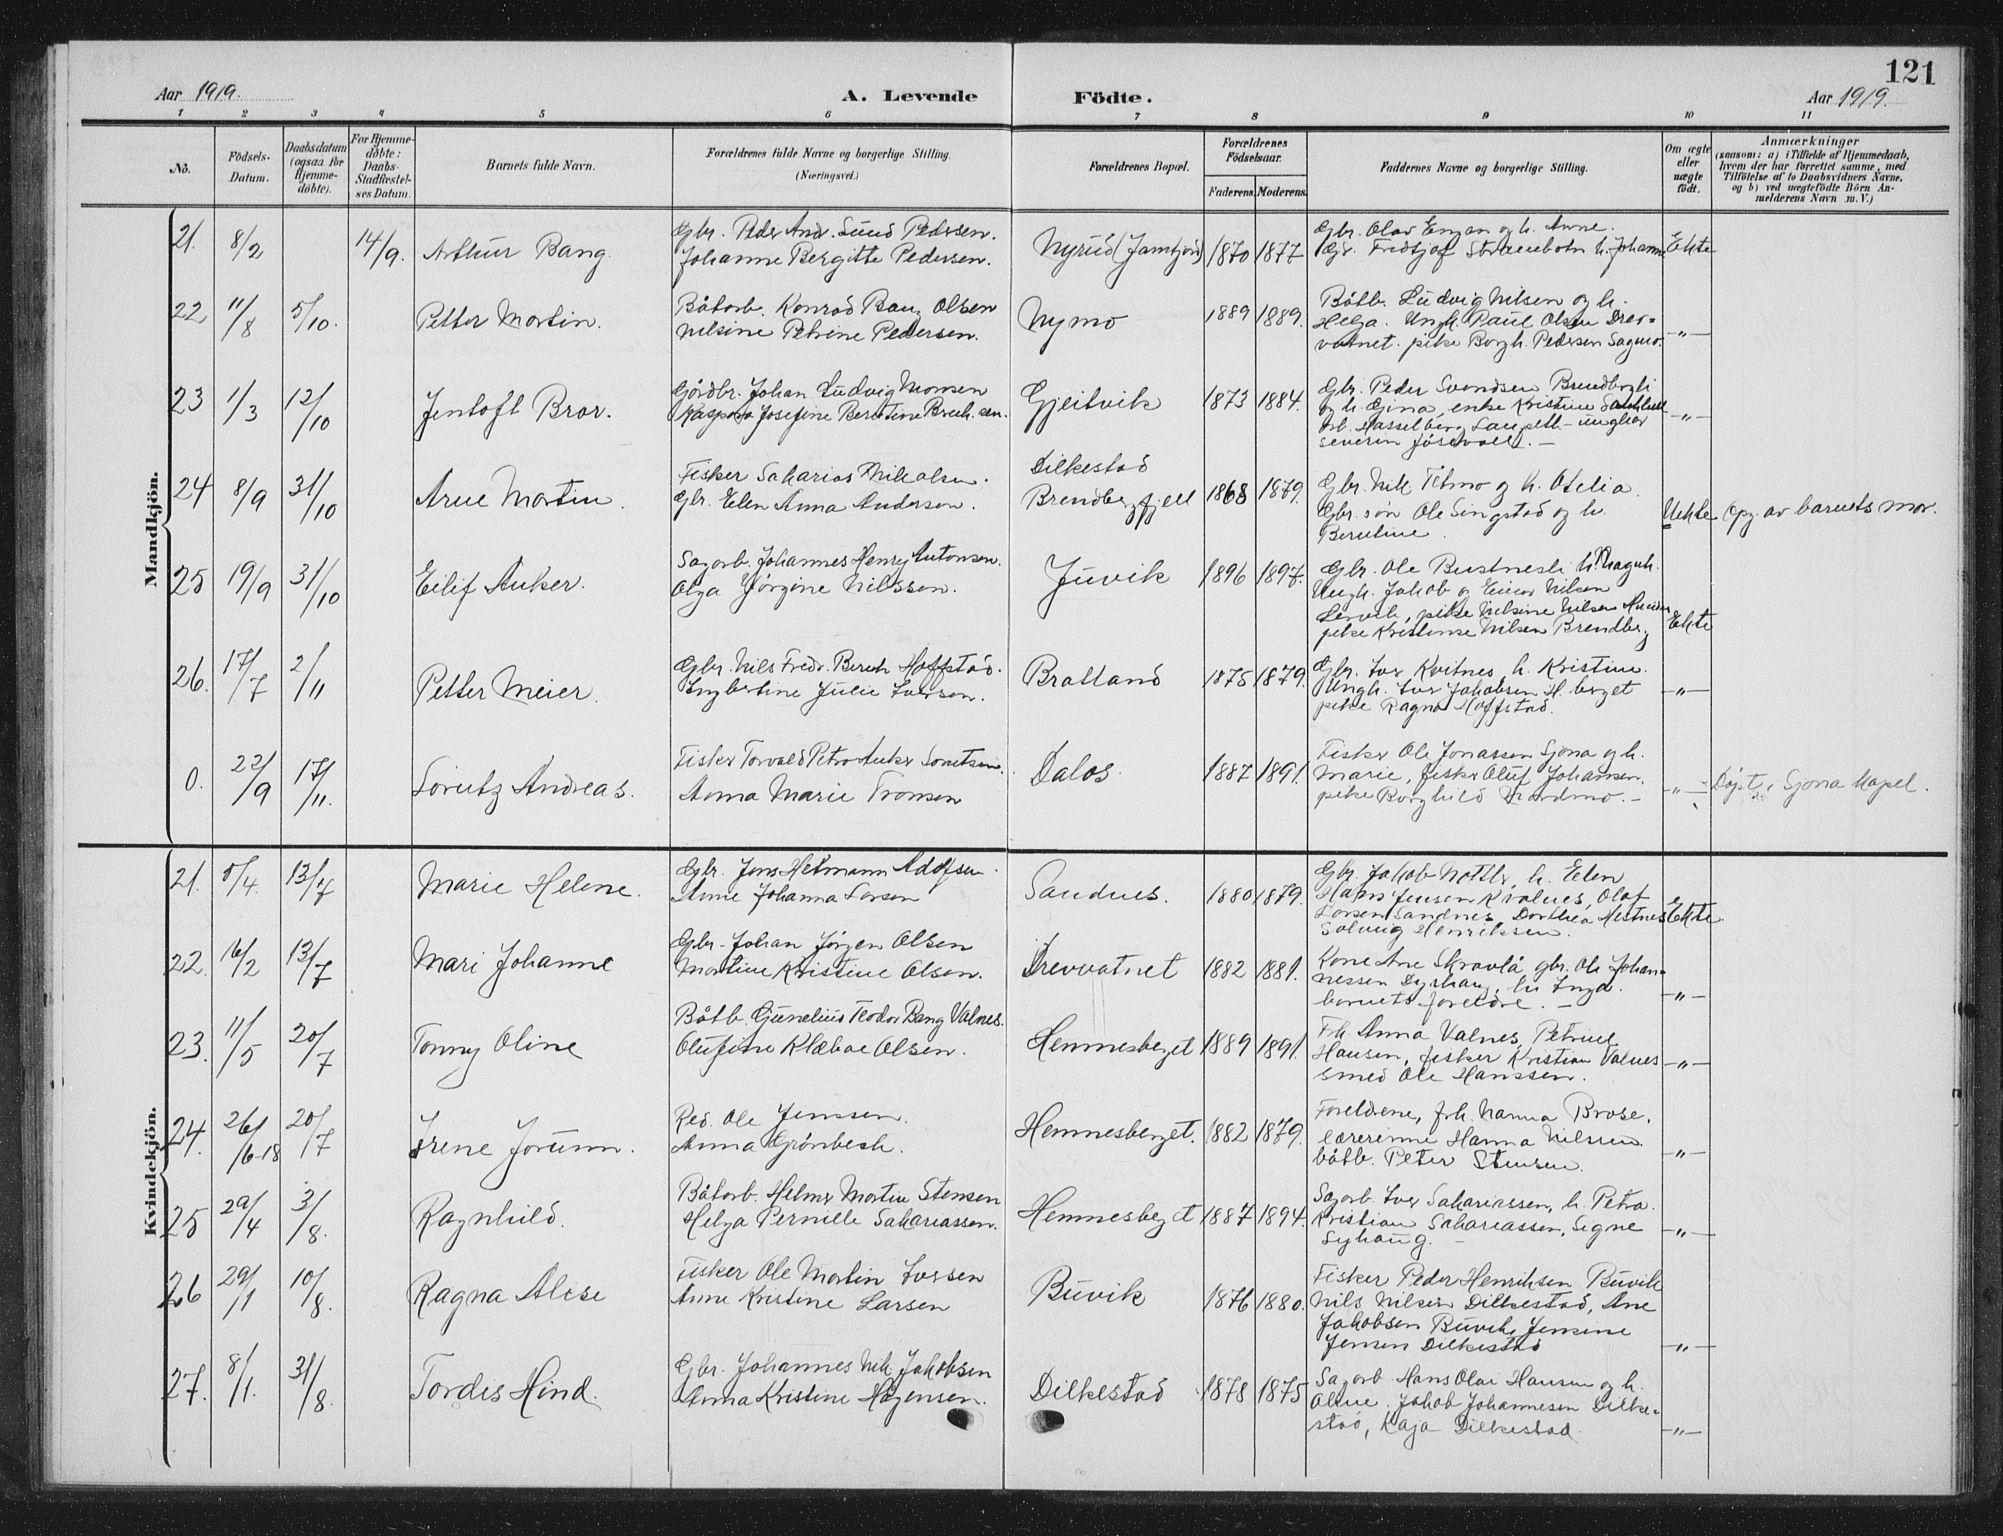 121
Aar 1919. A. Levende Födte. Aar 1919.
1 2 3 4 5 6 7 8 9 10 11
No. Födsels-Datum. Daabsdatum (ogsaa for Hjemme-döbte). For Hjemme-döbte: Daabs-Stadfæstel-ses Datum. Barnets fulde Navn. Forældrenes fulde Navne og borgerlige Stilling. (Næringsvei.) Forældrenes Bopæl. Forældrenes Födselsaar. Faderens. Moderens. Faddernes Navne og borgerlige Stilling. Om ægte eller uægte födt. Anmærkninger (saasom: a) i Tilfælde af Hjemmedaab, hvem der har forrettet samme, med Tilföielse af to Daabsvidners Navne, og b) ved uægtefödte Börn An-melderens Navn m. V.)
Mandkjön.
21. 8/2 14/9. Arthur Bang. Gbr. Peder And. Lund Pedersen. Nyrud (Jamtjord) 1870 1877 Gbr. Olav Engan og h. Anne.
Johanne Bergitte Pedersen. Gbr. Fridtjof Strauebotn h. Johanne Ekte
22 11/8 5/10. Petter Martin. Båtarb. Konrad Bang Olsen Nymo 1889 1889. Båtb. Ludvig Nilsen og h.
Nilsine Petrine Pedersen. Helga. Ungk. Paul Olsen Drev=
vatnet. pike Borgh. Pedersen Sagmo. -"-
23 1/3 12/10 Jentoft Bror. Gårdbr. Johan Ludvig Monsen Gjeitvik 1873 1884. Gbr. Peder Svendsen Brendbergli
Josefine Berntine og h. Gjina, enke Kristine
arb. Hasselberg - ungkar -"-
Severin
24 8/9 31/10 Arne Martin. Fisker Sakarias Nikolsen. Dilkestad 1868 1879. Gbr. Nik Tilmo og h. Ofelia.
Gbr. Elen Anna Andersen. Brendbergfjell Gbr. søn Ole Singstad og h. Uekte Opg. av barnets mor.
Berntine.
25 19/9 31/10 Eilif Anker. Sagarb. Johannes Henry Antonsen. Juvik 1896 1897. Gbr. Ole Bustnesli h.
Olga Jørgine Nilssen. Ungk. Jakob og Einar Nilsen
pike Nilsine Nilsen
pike Kristense Nilsen Brendberg Ekte
26. 17/7 2/11 Petter Meier. Gbr. Nils Fredr. Bernh Hoffstad. Bratland 1875 1879. Gbr. Iver Kvitnes h. Kristine.
Ingbertine Julie Iversen. Ungk. Iver Jakobsen H. berget -"-
pike Ragna Hoffstad.
0. 22/9 17/11. Lorentz Andreas. Fisker Torvald Petro Anker Lorntsen. Dalos. 1887 1891. Fisker Ole Jonassen Sjona og h.
Anna Marie Tronsen Marie, fisker Oluf Johansen,
pike Borghild Nordmo. - -"- Døpt i Sjona kapel.
Kvindekjön.
21. 5/4. 13/7 Marie Helene. Gbr. Jens Hetmann Adolfsen. Sandnes. 1880 1879. Gbr. Jakob h. Elen
Anne Johanna Larsen Hans Jensen Kvalnes, Olaf
Larsen Sandnes, Dorthea Ekte.
Solveig Henriksen.
22. 16/2 13/7 Mari Johanne Gbr. Johan Jörgen Olsen Drevvatnet 1882 1881. Kone Ane Skravlå gbr. Ole Johan=
Martine Kristine Olsen. nessen Dyrhaug, h.
barnets foreldre. - -"-
23. 11/5 20/7 Tonny Oline Båtb. Gunelius Teodor Bang Valnes. Hemnesberget 1889 1891. Frk. Anna Valnes, Petrine
Olufine Klæboe Olsen. Hansen, fisker Kristian Valnes -"-
smed Ole Hanssen.
24. 26/6-18 20/7 Irene Jorunn. Red. Ole Jenssen. Hemnesberget. 1882 1879. Foreldrene, frk. Nanna Brose,
Anna Grønbech. lærerinne Hanna Nilssen
båtb. Peter Stensen. -"-
25 29/4 3/8. Ragnhild. Båtarb. Helmer Martin Stensen Hemnesberget 1887 1894. Sagarb. Iver Sakariassen, h. Petra.
Helga Pernille Sakariassen. Kristian Sakariassen, Signe -"-
Lyhaug. -
26 29/1 10/8. Ragna Alise Fisker Ole Martin Iversen Buvik 1876 1880. Fisker Peder Henriksen Buvik
Anne Kristine Larsen Nils Nilsen Dilkestad, Ane
Jakobsen Buvik, Jensine
Jensen Dilkestad -"-
27. 8/1. 31/8. Tordis Hind. Gbr. Johannes Nik. Jakobsen Dilkestad 1878 1875 Sagarb Hans Olai Hansen og h.
Anna Kristine Hagensen. Oline. Jakob Johannesen Dilke=
stad, Kaja Dilkestad. -"-